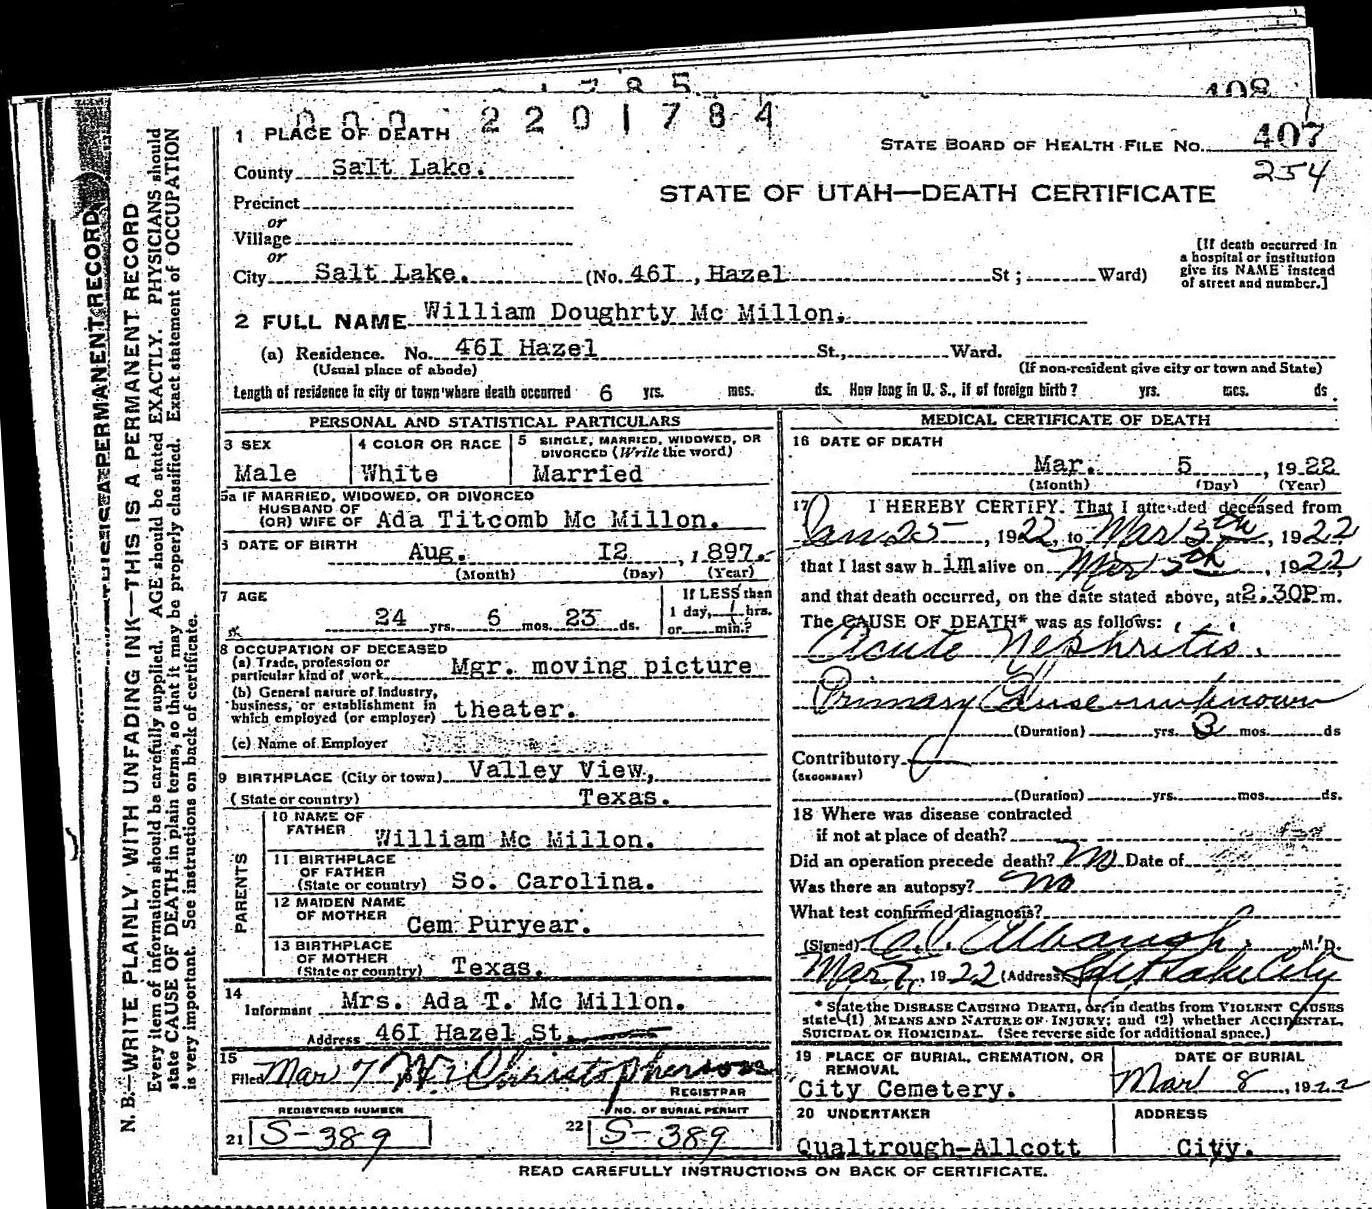 1785
408
000 2201784
1 PLACE OF DEATH
STATE BOARD OF HEALTH FILE No. 407
254
County Salt Lake.
STATE OF UTAH—DEATH CERTIFICATE
Precinct
or
Village
or
City Salt Lake. (No. 46I, Hazel St; Ward)
[If death occurred in
a hospital or institution
give its NAME instead
of street and number.]
2 FULL NAME William Doughrty Mc Millon.
(a) Residence. No. 46I Hazel St., Ward.
(Usual place of abode) (If non-resident give city or town and State)
Length of residence in city or town where death occurred 6 yrs. mos. ds. How long in U. S., if of foreign birth? yrs. mos. ds.
PERSONAL AND STATISTICAL PARTICULARS
3 SEX
Male
4 COLOR OR RACE
White
5 SINGLE, MARRIED, WIDOWED, OR
DIVORCED (Write the word)
Married
5a IF MARRIED, WIDOWED, OR DIVORCED
HUSBAND OF
(OR) WIFE OF Ada Titcomb Mc Millon.
6 DATE OF BIRTH Aug. I2, 1897.
(Month) (Day) (Year)
7 AGE
24 yrs. 6 mos. 23 ds.
If LESS than
1 day, hrs.
or min.?
8 OCCUPATION OF DECEASED
(a) Trade, profession or
particular kind of work Mgr. moving picture
(b) General nature of Industry,
business, or establishment in
which employed (or employer) theater.
(c) Name of Employer
9 BIRTHPLACE (City or town) Valley View,
(State or country) Texas.
PARENTS
10 NAME OF
FATHER William Mc Millon.
11 BIRTHPLACE
OF FATHER
(State or country) So. Carolina.
12 MAIDEN NAME
OF MOTHER Cem Puryear.
13 BIRTHPLACE
OF MOTHER
(State or country) Texas.
14
Informant Mrs. Ada T. Mc Millon.
Address 46I Hazel St.
15
Filed Mar 7 Christopherson
REGISTRAR
REGISTERED NUMBER
21 S-389
NO. OF BURIAL PERMIT
22 S-389
MEDICAL CERTIFICATE OF DEATH
16 DATE OF DEATH
Mar. 5, 1922
(Month) (Day) (Year)
17 I HEREBY CERTIFY. That I attended deceased from
Jan 25, 1922, to Mar 5th, 1922
that I last saw him alive on Mar 5th, 1922,
and that death occurred, on the date stated above, at 2.30P m.
The CAUSE OF DEATH* was as follows:
Acute Nephritis.
Primary Cause unknown
(Duration) yrs. 3 mos. ds
Contributory
(SECONDARY)
(Duration) yrs. mos. ds.
18 Where was disease contracted
if not at place of death?
Did an operation precede death? No Date of
Was there an autopsy? no
What test confirmed diagnosis?
(Signed) Albaugh, M. D.
Mar 7, 1922 (Address) Salt Lake City
* State the DISEASE CAUSING DEATH, or, in deaths from VIOLENT CAUSES
state (1) MEANS AND NATURE OF INJURY; and (2) whether ACCIDENTAL,
SUICIDAL OR HOMICIDAL. (See reverse side for additional space.)
19 PLACE OF BURIAL, CREMATION, OR
REMOVAL
City Cemetery.
DATE OF BURIAL
Mar 8, 1922
20 UNDERTAKER
Qualtrough-Allcott
ADDRESS
City.
READ CAREFULLY INSTRUCTIONS ON BACK OF CERTIFICATE.
THIS IS A PERMANENT RECORD
N. B.—WRITE PLAINLY WITH UNFADING INK—THIS IS A PERMANENT RECORD
Every item of information should be carefully supplied. AGE should be stated EXACTLY. PHYSICIANS should
state CAUSE OF DEATH in plain terms, so that it may be properly classified. Exact statement of OCCUPATION
is very important. See instructions on back of certificate.